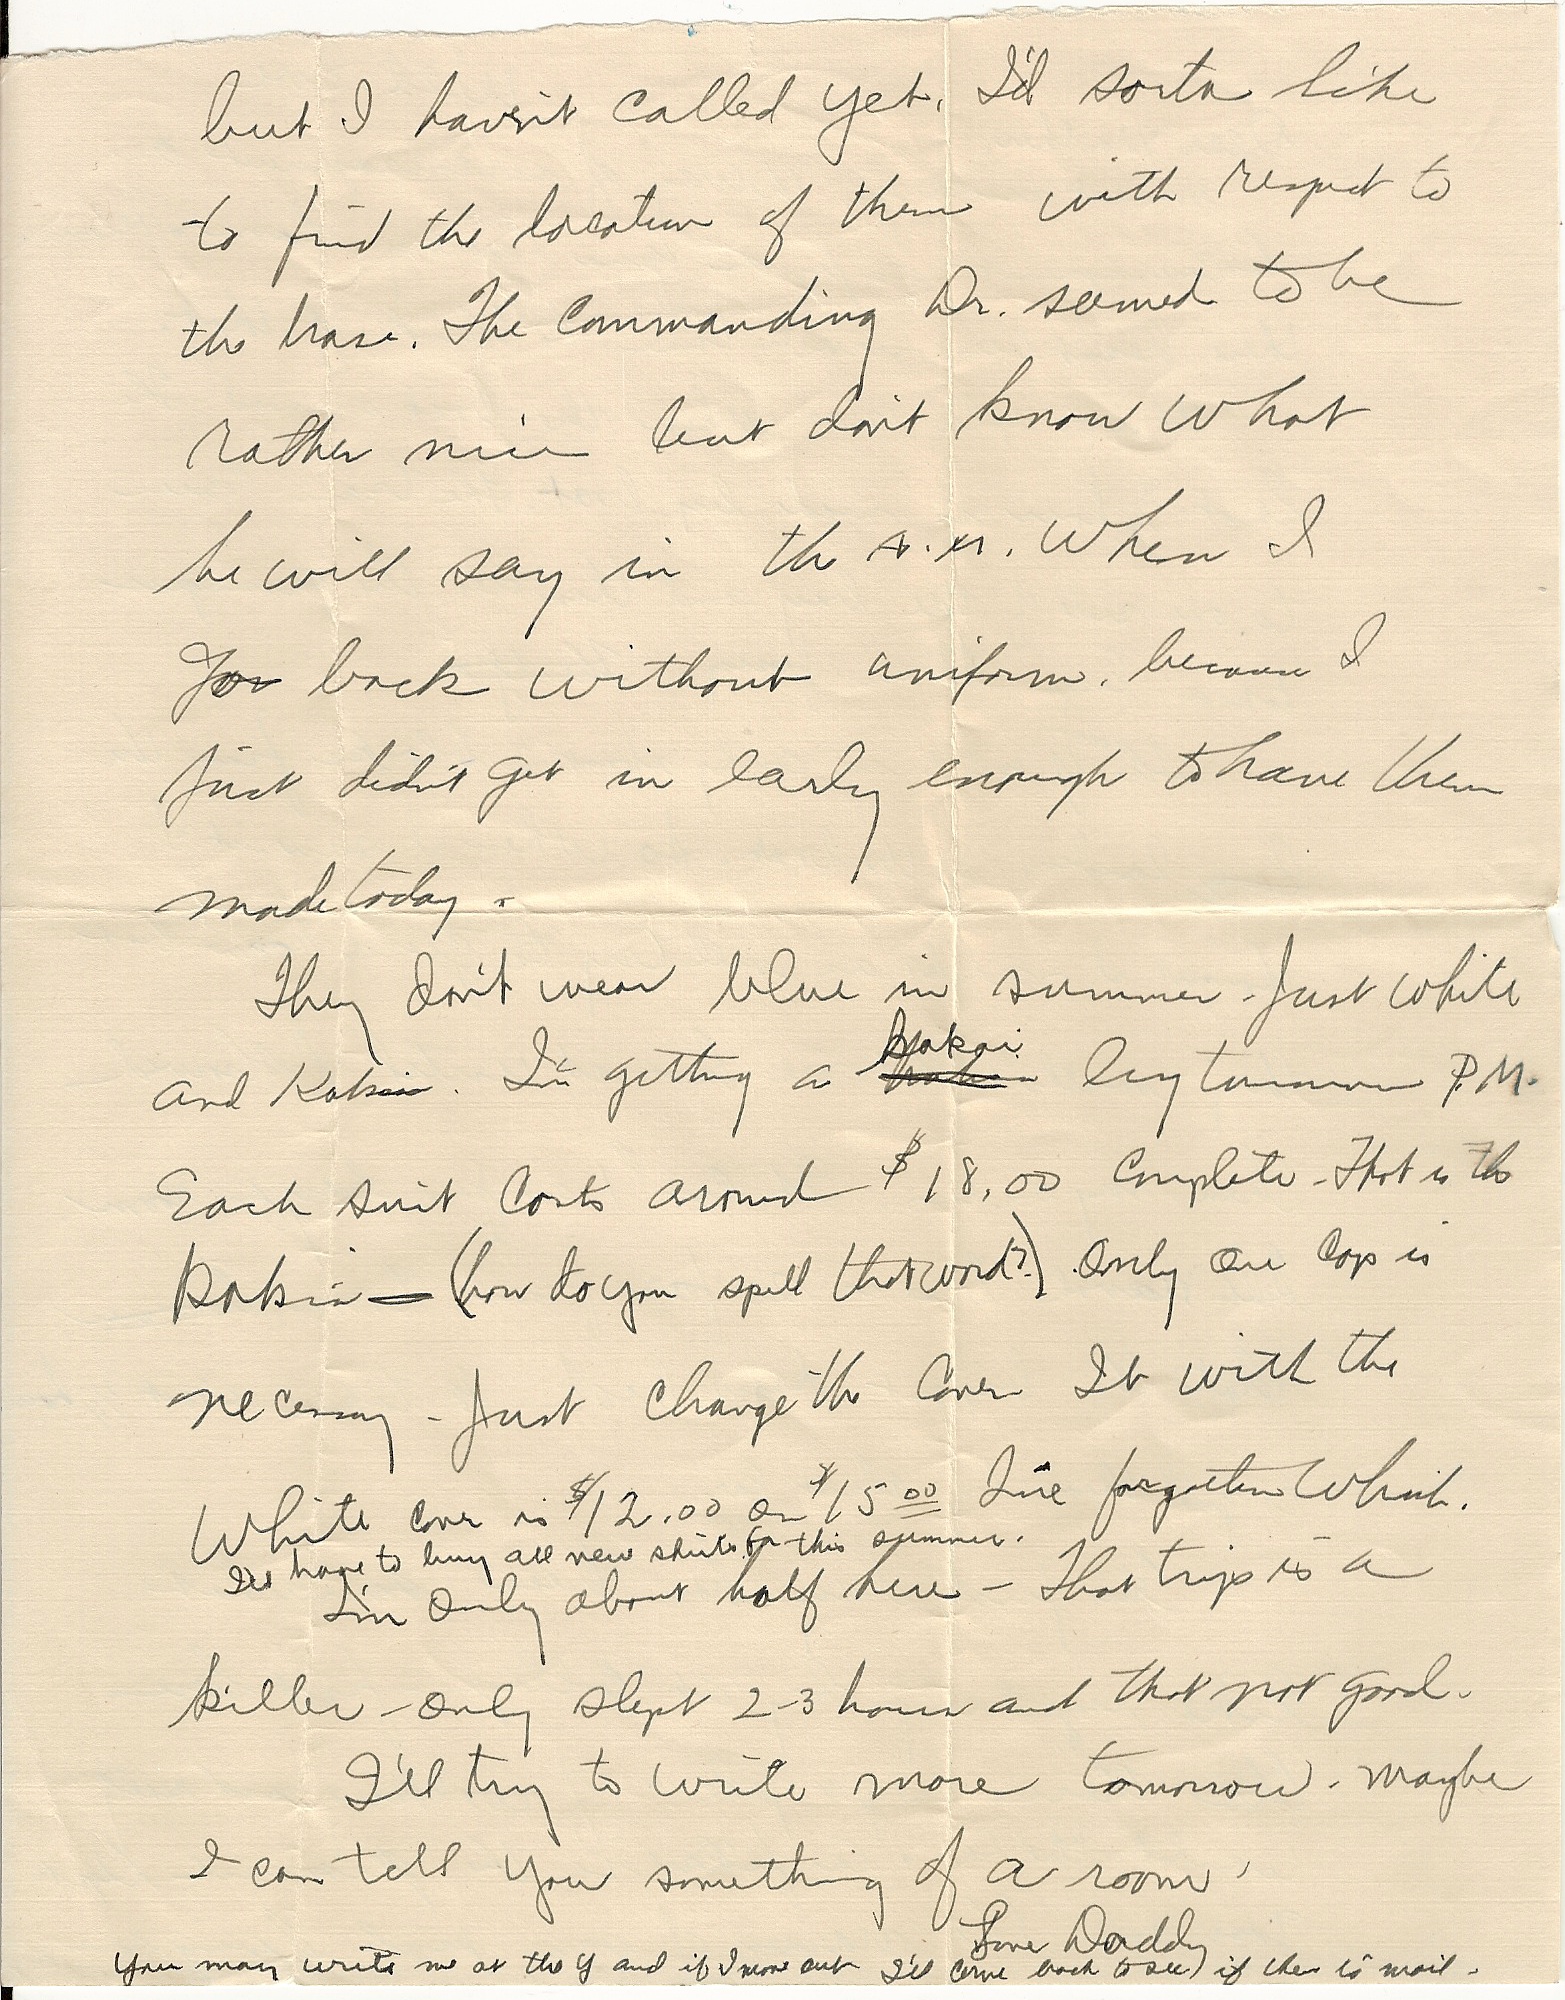 but I havn't called yet. I'd sorta like
to find the location of them with respect to
the base. The commanding Dr. seemed to be
rather nice but don't know what
he will say in the a.m. when I
go back without uniform. because I
just didn't get in early enough to have them
made today.
They don't wear blue in summer - Just white
and Kakia. I'm getting a Kakai by tomorrow P.M.
Each suit costs around $18.00 complete - That is the
Kakia — (how do you spell that word?) Only one cap is
necessary - Just change the cover It with the
White cover is $12.00 or $15.00 I've forgotten which.
I'll have to buy all new shirts for this summer.
I'm only about half here - That trip is a
killer - only slept 2-3 hours and that not good.
I'll try to write more tomorrow. maybe
I can tell you something of a room.
Love Daddy
You may write me at the Y and if I move out I'll come back to see if there is mail.